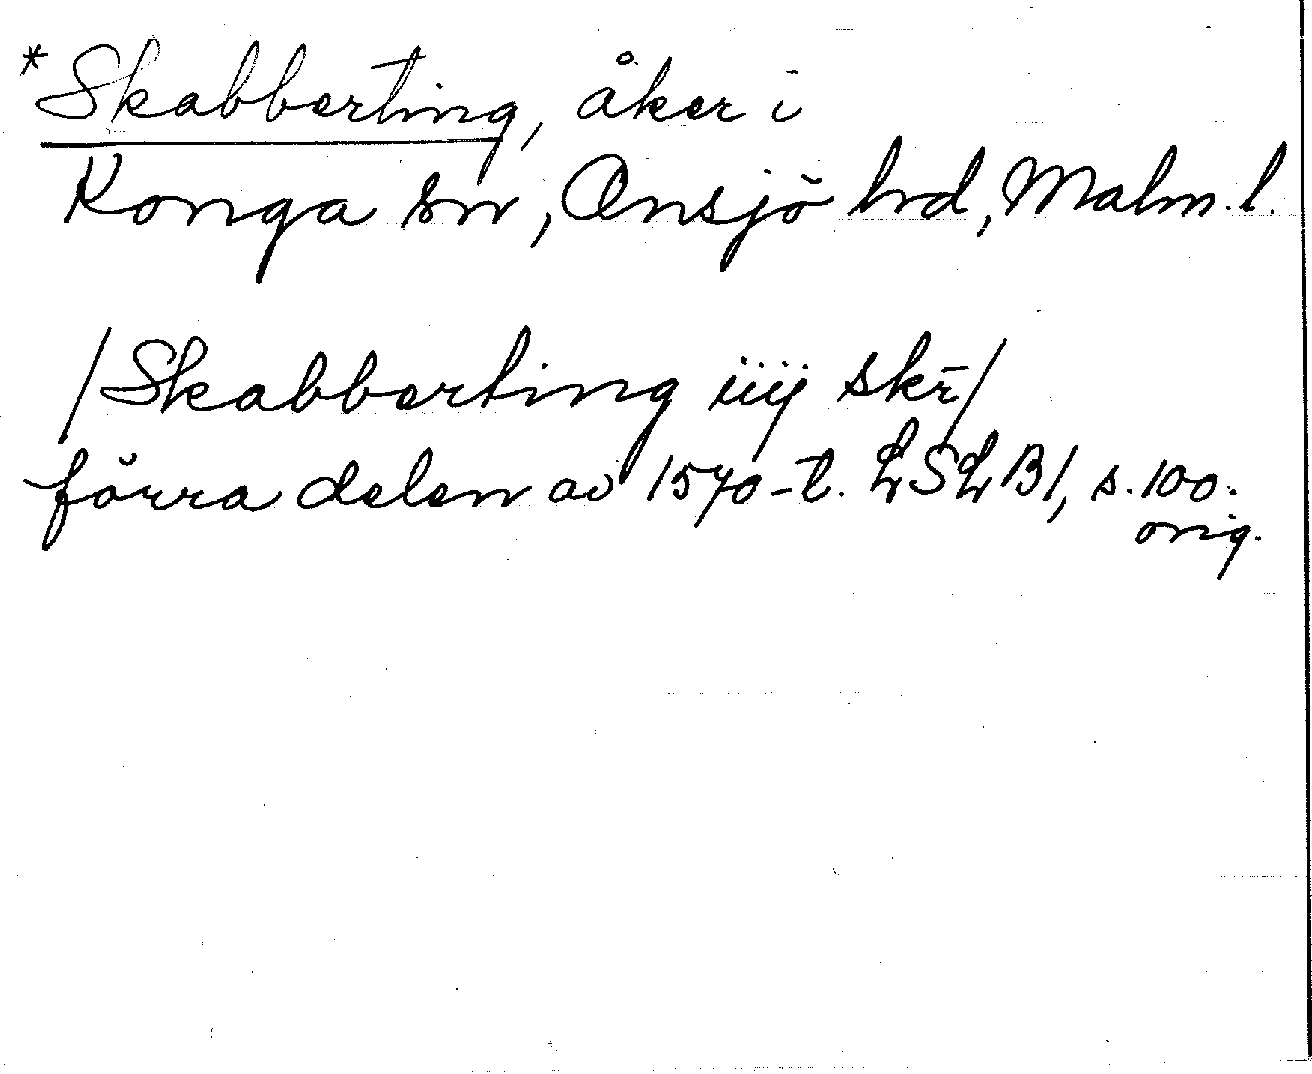 *Skabberting, åker i
Konga sn, Onsjö hrd, Malm.l.
/Skabberting iiij skr/
förra delen av 1570-t. LSLB1, s. 100.
orig.